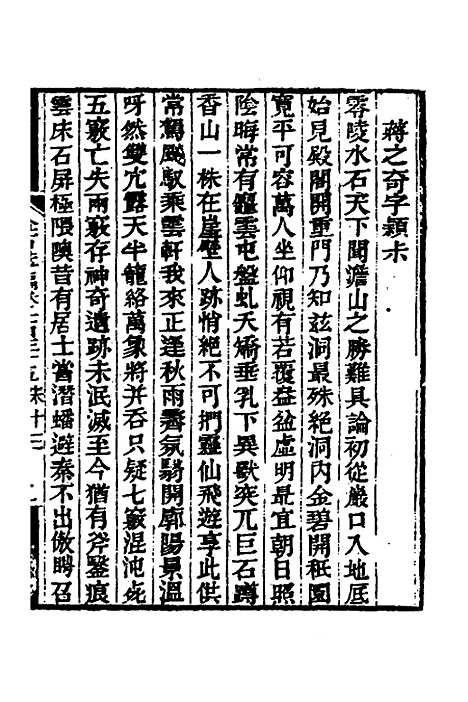 蔣之奇字穎叔
零陵水石天下聞澹山之勝難具論初從巖口入地底
始見殿閣開重門乃知茲洞最殊絕洞內金碧開祇園
寬平可容萬人坐仰視有若覆盎盆虛明最宜朝日照
陰晦常有靈雲屯盤虬夭矯垂乳下異獸突兀巨石蹲
香山一株在崖壁人跡悄絕不可捫靈仙飛遊享此供
常駕飈馭乘雲軒我來正逢秋雨霽氛翳開廓陽景溫
呀然雙穴露天半籠絡萬象將并吞只疑七竅混沌死
五竅亡失兩竅存神奇遺跡未泯滅至今猶有斧鑿痕
雲床石屏極隈隩昔有居士嘗潛蟠避秦不出傲聘召